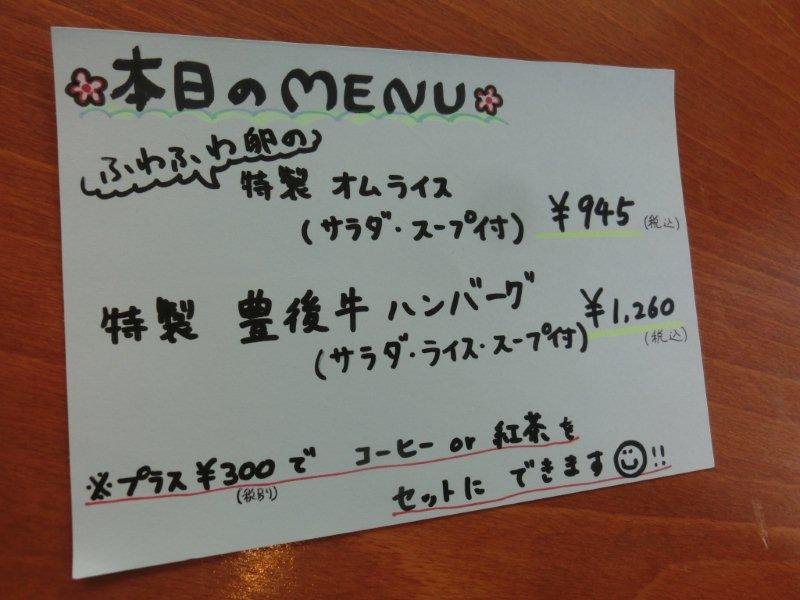 本日のMENU
ふわふわ卵の
特製 オムライス
(サラダ・スープ付) ¥945 (税込)
特製 豊後牛 ハンバーグ
(サラダ・ライス・スープ付) ¥1,260 (税込)
※プラス¥300で コーヒー or 紅茶を
(税別)
セットに できます!!